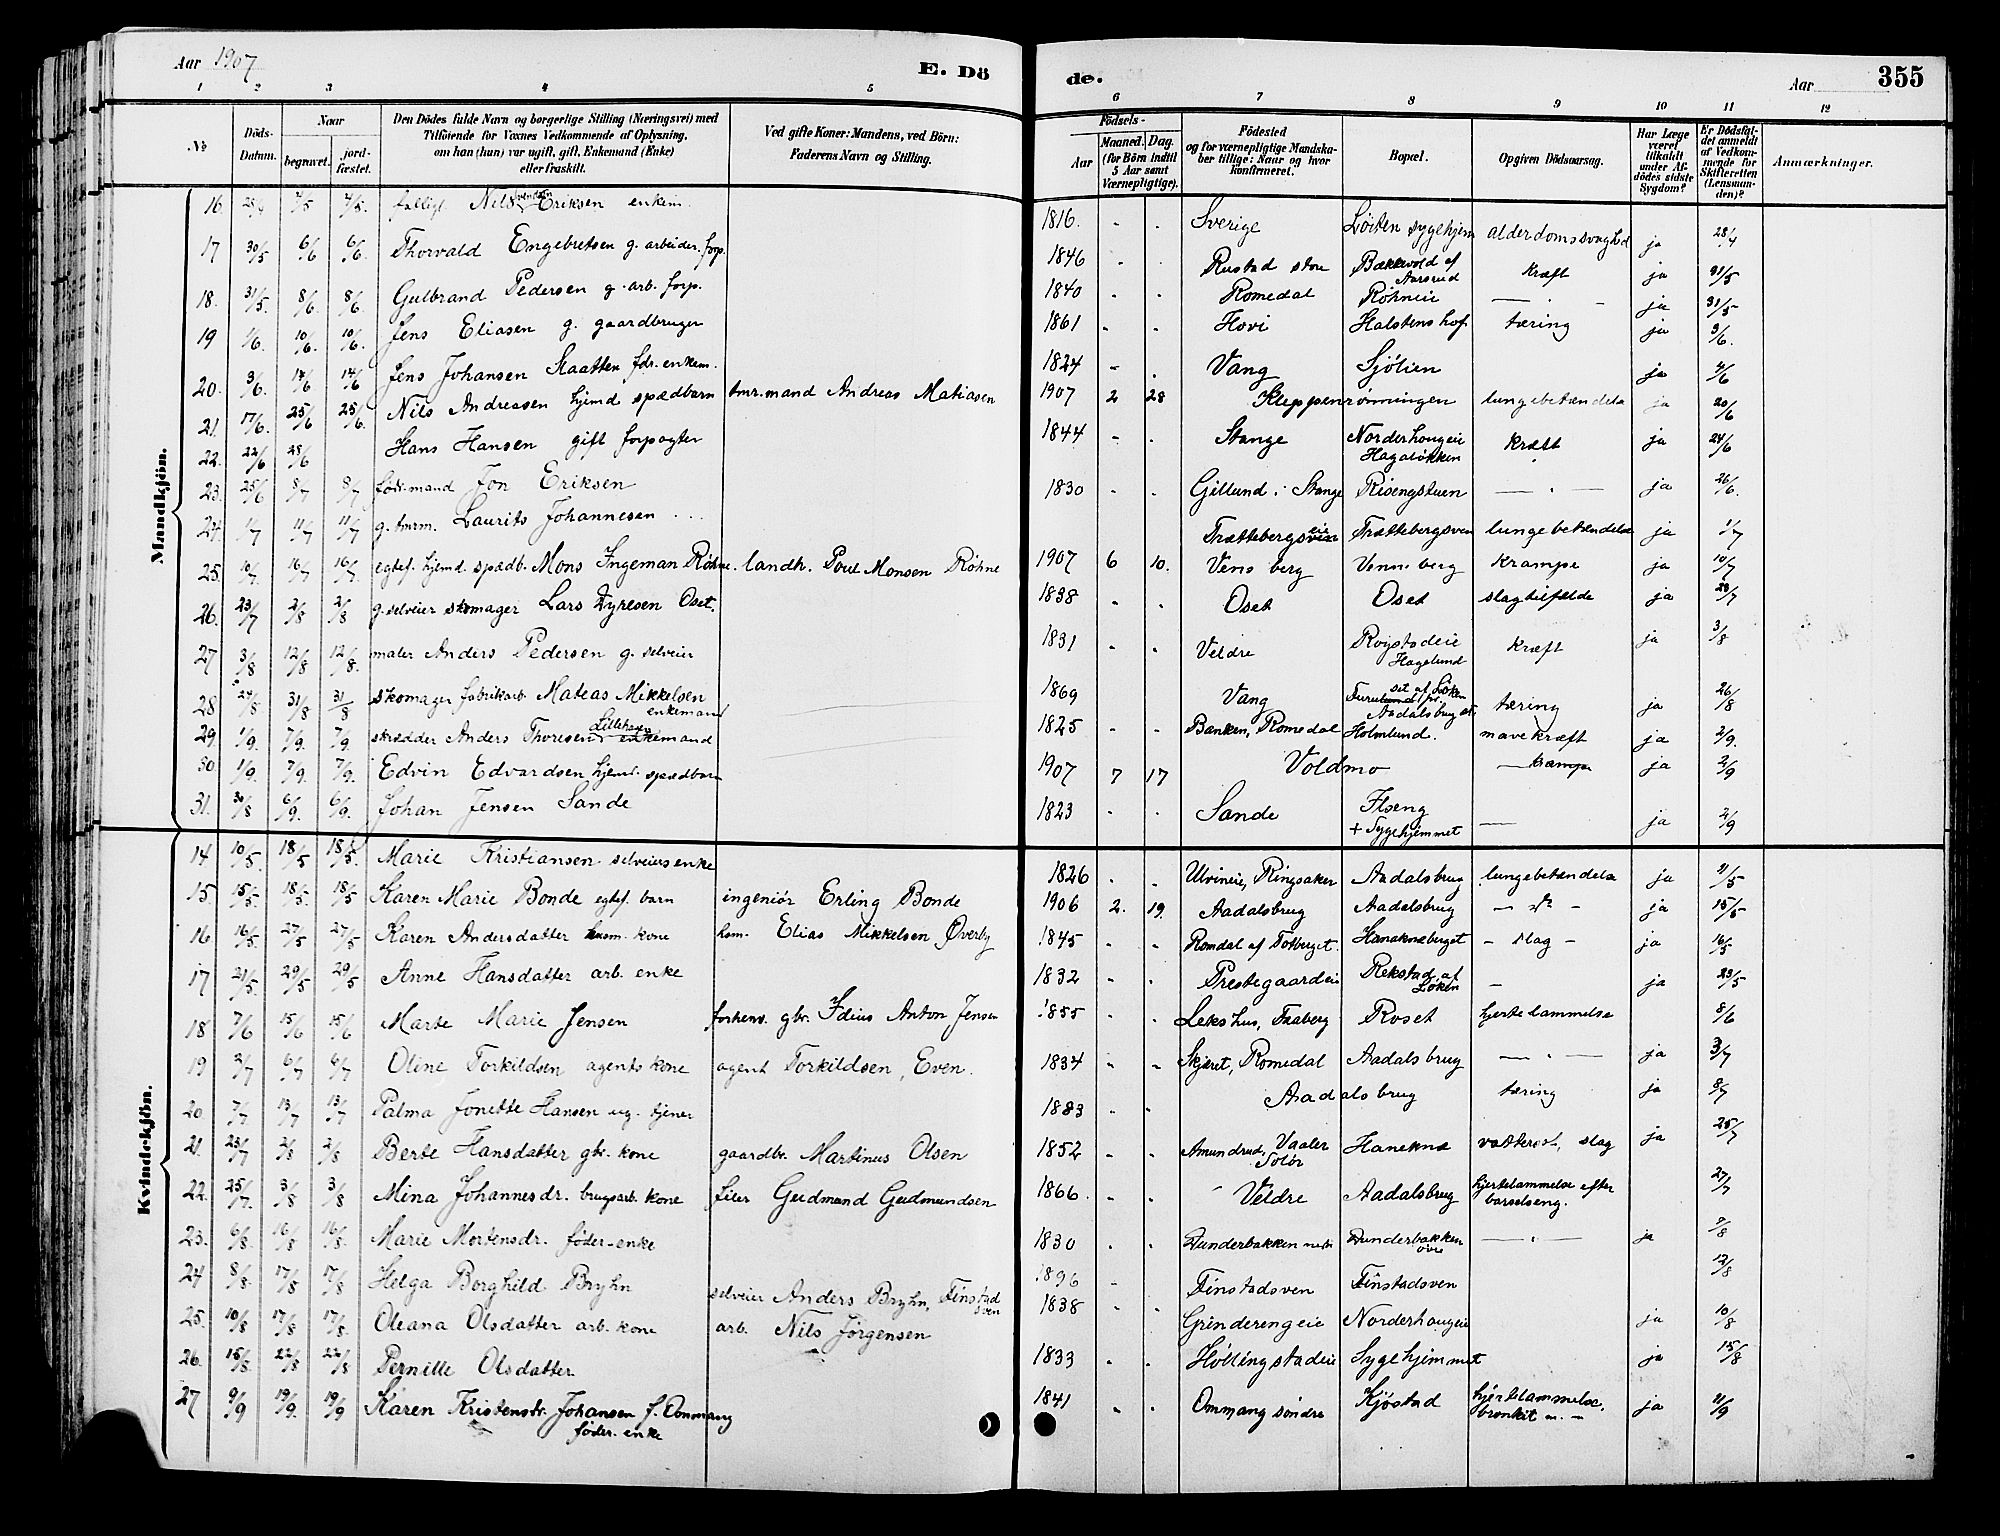 Aar 1907
E. Dö
de.
Aar
355
1 2 3 4 5 6 7 8 9 10 11 12
No
Döds-Datum.
Naar
begravet.
jordfæstet.
Den Dödes fulde Navn og borgerlige Stilling (Næringsvei) med
Tilföiende for Voxnes Vedkommende af Oplysning,
om han (hun) var ugift, gift, Enkemand (Enke)
eller fraskilt.
Ved gifte Koner: Mandens, ved Börn:
Faderens Navn og Stilling.
Födsels-
Aar
Maaned. Dag.
(for Börn indtil
5 Aar samt
Værnepligtige).
Födested
og for værnepligtige Mandska-
ber tillige: Naar og hvor
konfirmeret.
Bopæl.
Opgiven Dödsaarsag.
Har Læge
været
tilkaldt
under Af-
dödes sidste
Sygdom?
Er Dödsfal-
det anmeldt
af Vedkom-
mende for
Skifteretten
(Lensman-
den)?
Anmærkninger.
Mandkjön.
16 4/5 4/5. Nils Svendsen Eriksen enkem. 1816 Sverige Löiten sygehjem alderdomssvaghed ja 28/4
17 30/5 6/6 6/6. Thorvald Engebretsen g. arbeider. forp. 1846 Rustad Bækkevold af Aarsrud kræft ja 31/5
18. 31/5. 8/6 8/6 Gulbrand Pedersen g. arb. forp. 1840 Romedal Röhneie — " — ja 31/5
19 1/6. 10/6. 10/6. Jens Eliasen g. gaardbruger 1861 Hovi Halstenshof tæring ja 3/6.
20. 3/6. 14/6 14/6 Jens Johansen Slaatten fdr. enkem. 1824 Vang Sjölien ja 4/6
21. 17/6. 25/6 25/6. Nils Andreasen hjemd spædbarn tmr.mand Andreas Matiasen 1907 2 28 Kleppenrönningen lungebetændelse ja 20/6
22. 22/6 28/6 Hans Hansen gift forpagter 1844 Stange Norderhougeie Hagalökken kræft ja 24/6
23. 25/6 8/7 8/7 föderaadsmand Jon Eriksen 1830 Gillund i Stange Risengstuen — " — ja 26/6.
24. 1/7 11/7 11/7 g. tmrm. Laurits Johannesen Trættebergsveen lungebetændelse ja 1/7
25. 10/7. 16/7 16/7 egtef. hjemd. spædb. Mons Ingeman Röhne. landh. Poul Monsen Röhne 1907 6 10. Vensberg Vennsberg Krampe ja 10/7
26. 23/7 2/8 2/8 g. selveier skomager Lars Oset. 1838 Oset Oset slagtilfælde ja
27 3/8 12/8 12/8. maler Anders Pedersen g. selveier 1831 Veldre Hagelund kræft ja 3/8
28 24/8 31/8 31/8 skomager fabrikarb. Mateas Mikkelsen enkemand 1869 Vang Aadalsbrug st. tæring ja 26/8
29. 1/9. 7/9. 7/9. skrædder Anders Thoresen Lillehagen enkemand 1825 Banken, Romedal Holmlund. mavekræft ja 2/9.
30. 1/9. 7/9. 7/9. Edvin Edvardsen hjemd. spædbarn 1907 7 17 Voldmo — krampe ja 2/9
31. 30/8 6/9. 6/9. Johan Jensen Sande 1823 Sande Ilseng + Sygehjemmet — ja 2/9
Kvindekjön.
14 10/5. 18/5 18/5. Marie Kristiansen selveiers enke 1826 Ulvineie, Ringsaker Aadalsbrug lungebetændelse ja 11/5
15. 15/5. 18/5. 18/5 Karen Marie Bonde egtef. barn ingeniör Erling Bonde 1906 2. 19. Aadalsbrug Aadalsbrug — ja 15/5
16 16/5. 27/5 27/5 Karen Andersdatter husm. kone hsm. Elias Mikkelsen Överby 1845 Romdal af Totberget. Hanaknæberget — slag — ja 16/5
17 21/5. 29/5 29/5 Anne Hansdatter arb. enke 1832 Prestegaardeie Rekstad af Löken — ja 23/5
18 7/6 15/6 15/6 Marte Marie Jensen forhenv. gbr. Idius Anton Jensen 1855 Lekshus, Faaberg Roset hjertelammelse 8/6
19 2/7 6/7 6/7 Oline Torkildsen agents kone agent Torkildsen, Even. 1834 Skjæret, Romedal Aadalsbrug — " — ja 3/7
20 7/7 13/7 13/7 Palma Jonette Hansen ug. tjener 1883 Aadalsbrug tæring ja 8/7
21. 23/7 2/8 2/8 Berte Hansdatter gbr. kone gaardbr. Martinus Olsen 1852 Amundrud, Vaaler Solör Haneknæ vattersot, slag ja 25/7
22. 25/7. 3/8 3/8 Mina Johannesdr. brugsarb. kone filer Gudmund Gudmundsen 1866 Veldre Aadalsbrug hjertelammelse efter barselseng. 27/7
23. 6/8. 16/8 16/8. Marie Mortensdr. föder-enke 1830 Dunderbakken nedre Dunderbakken övre — " — ja 7/8
24 8/8. 17/8 17/8 Helga Borghild Bryhn selveier Anders Bryhn, Finstadsven 1896 Finstadsven Finstadsven 12/8
25. 10/8 17/8 17/8. Oleana Olsdatter arb. kone arb. Nils Jörgensen 1838 Grinderengeie Norderhougeie ja 10/8
26. 15/8. 22/8 22/8 Pernille Olsdatter 1833 Höllingstadeie Sygehjemmet ja 15/8
27 9/9 19/9. 19/9 Karen Kristensdr. Johansen f. Ommang föder. enke 1841 Ommang söndre Kjöstad hjertelammelse, bronkit m. — ja 11/9